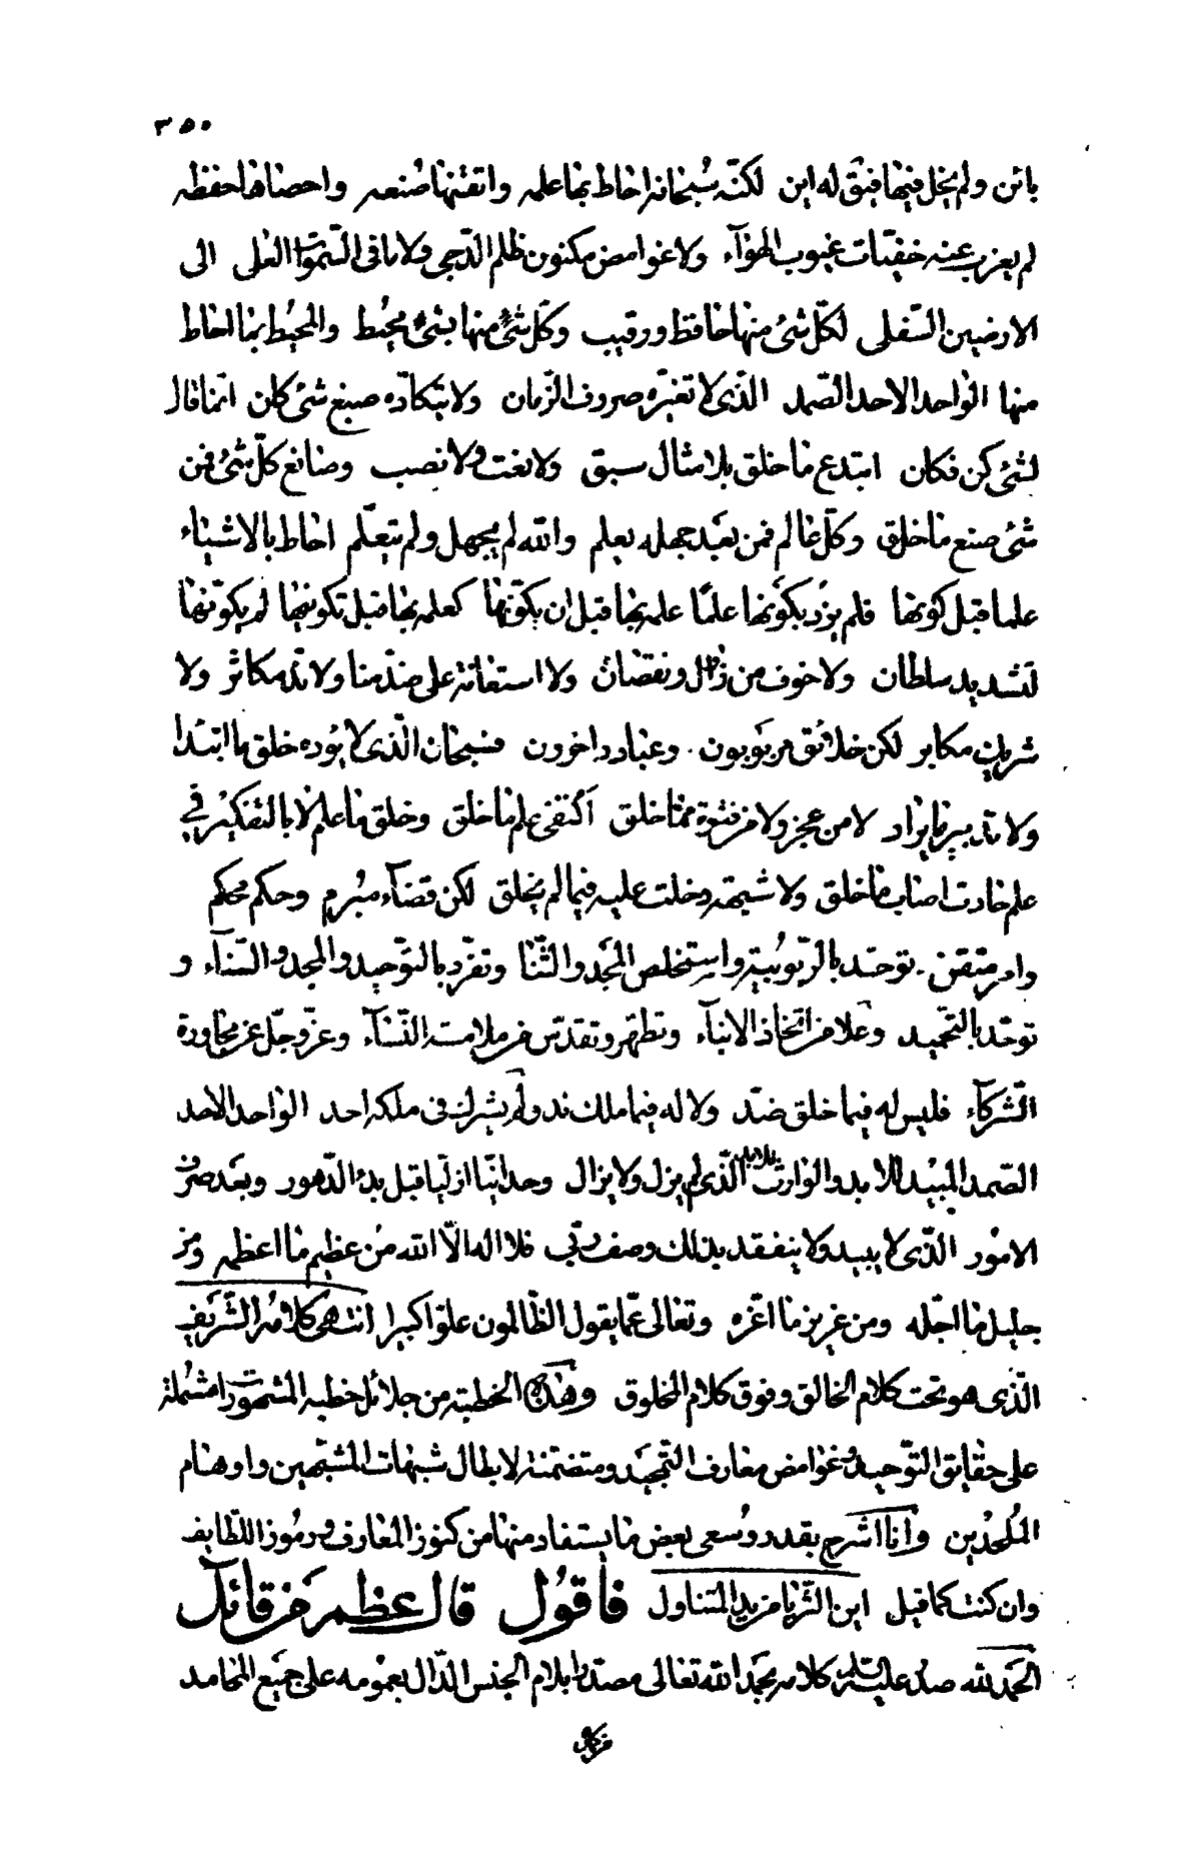 ٣٥٠
بائن ولم يخل فيها فيقق له اين لكنّه سُبحانه احاط بها علمه واتقنها صُنعه واحصاها حفظه
لم يعزب عنه خفيّات غيوب الهوآء ولا غوامض مكنون ظلم الدّجى ولا ما فى السّموات العلى الى
الارضين السّفلى لكلّ شئ منها حافظ ورقيب وكلّ شئ منها بشئ محيُط والمحيُط بما احاط
منها الواحد الاحد الصّمد الّذى لا تغيّره صروف الزّمان ولا يتكأده صنع شئ كان انّما قال
لشئ كن فكان ابتدع ما خلق بلا مثال سبق ولا تعب ولا نصب وصانع كلّ شئ فمن
شئ صنع ما خلق وكلّ عالم فمن بعَد جهله يعلم والله لم يجهل ولم يتعلّم احاط بالاشياء
علما قبل كونها فلم يزدَد بكَونها علمًا علمه بها قبل ان يكوّنها كعلمه بها قبل تكوينها لم يكوّنها
لتشديد سلطان ولا خوف من زوال ونقصان ولا استعانة على ضدّ منا ولا ندّ مكاثر ولا
شريك مكابر لكن خلائق مربَوبون وعباد داخرون فسبحان الّذى لا يؤده خلق ما ابتدا
ولا تدبير ما يراد لا من عجز ولا من فتوة ممّا خلق اكتفى علم ما خلق وخلق ما علم لا بالتفكير في
علم حادث اصاب ما خلق ولا شبهة دخلت عليه فيما لم يخلق لكن قضآء مبُرم وحكم محكم
وامر متقن توحّد بالربّوبيّة واستخلص المجَد والثّنا وتفرّد بالتوّحيد والمجد والسّناء و
توحّد بالتحّميد وعلا من اتّخاذ الابنآء وتطهّر وتقدّس عن ملامسة النّسآء وعزّ وجلّ عن مجاورة
الشّركآء فليس له فيما خلق ضدّ ولا له فيما ملك ند ولم يشرك فى ملكه احد الواحد الاحد
الصّمد المبيد للابد والوارث للامد الّذى لم يزل ولا يزال وحدانيّا ازليّا قبل بدء الدّهور وبعَد صرف
الامُور الّذى لا يبيد ولا ينفقد بذلك وصف ربّى فلا اله الاّ الله منُ عظيم ما اعظمه ومن
جليل ما اجلّه ومن عزيز ما اعّزه وتعالى عمّا يقول الظّالمون علوّا كبيرا انتهى كلامُه الشّريَف
الّذى هو تحت كلام الخالق وفوق كلام المخلوق وهٰذه الخطبة من جلائل خطبه المشهورات مشتملة
على حقايق التوّحيد وغوامض معارف التّمجيَد ومتضمّنة لابطال شبهات المشبّهين واوهام
الملُحدين وانا اشرح بقدر وُسعى بعض ما يستفاد منها من كنوز المعارف ورمُوز اللّطايف
وان كنت كما قيل اين الثّريّا من يد المتناول فأقوُل قال عظم مَن قائل
الحَمد لله صدّر عليه السّلم كلامه بحمَد الله تعالى مصدّرا بلام الجنس الدّال بعمُومه على جميَع المحامد
من كل